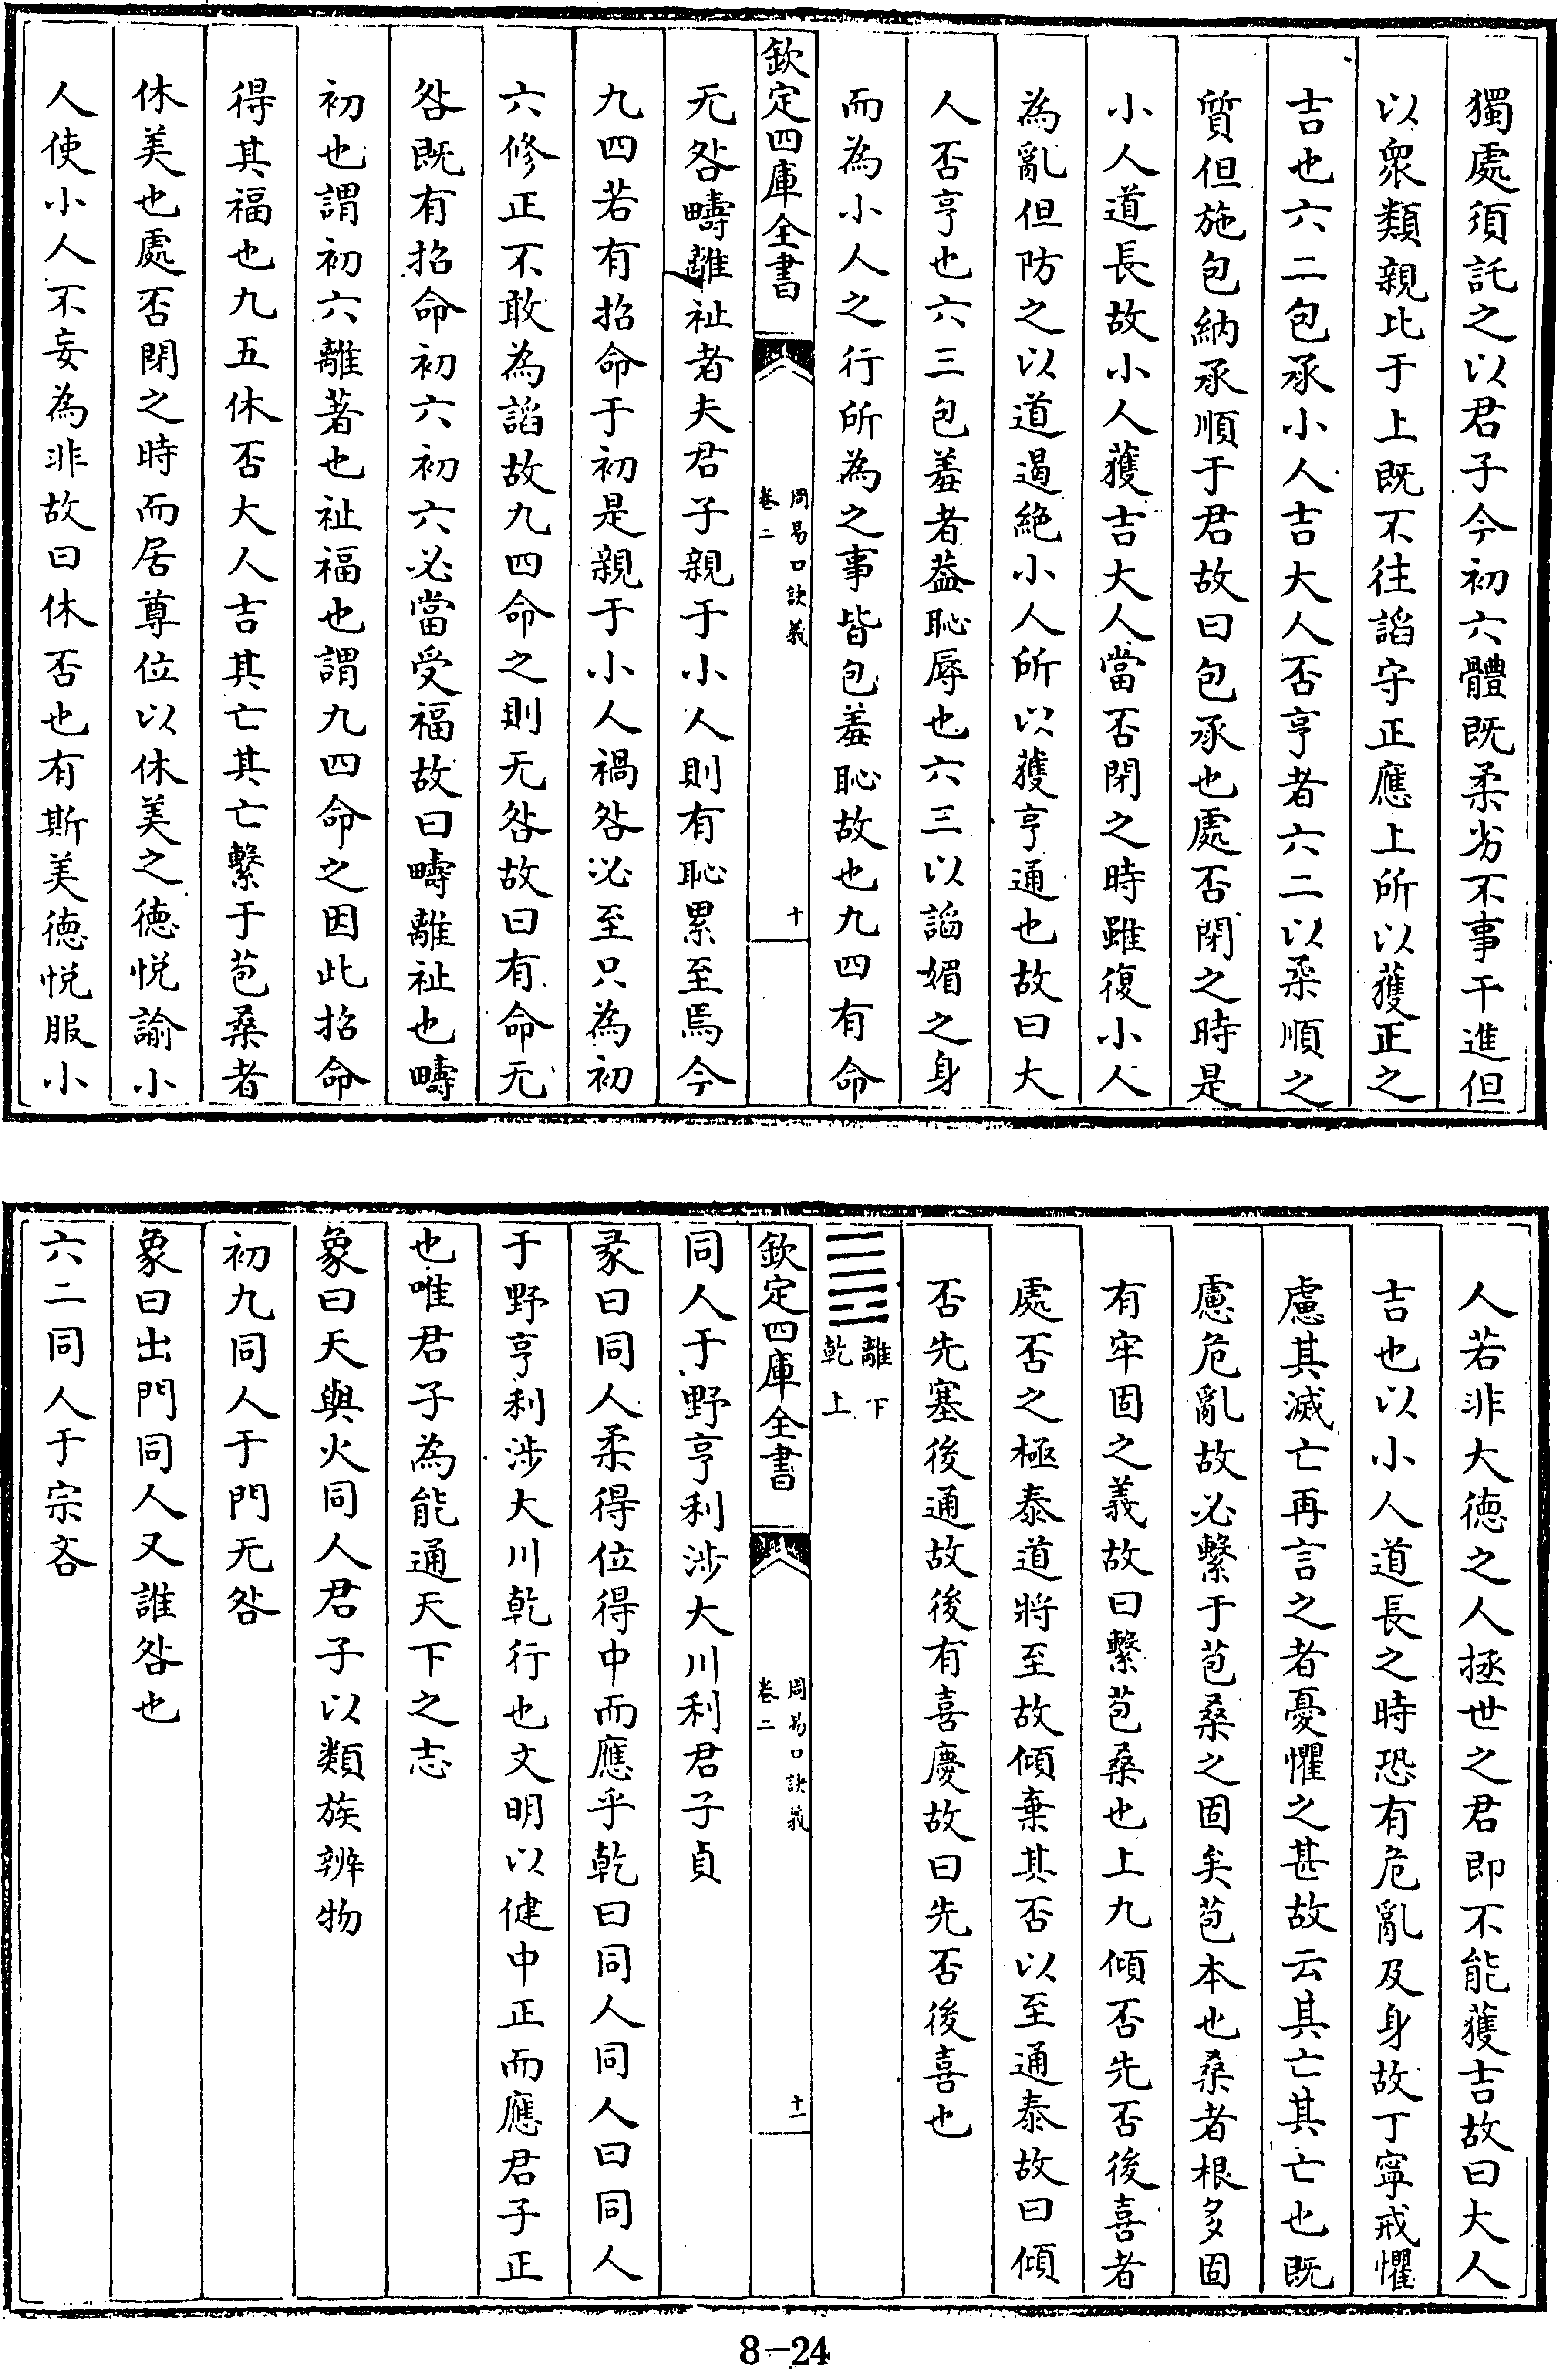 獨處須託之以君子今初六體既柔劣不事干進但
以衆類親比于上既不往謟守正應上所以獲正之
吉也六二包承小人吉大人否亨者六二以柔順之
質但施包納承順于君故曰包承也處否閉之時是
小人道長故小人獲吉大人當否閉之時雖復小人
為亂但防之以道遏絶小人所以獲亨通也故曰大
人否亨也六三包羞者葢恥辱也六三以謟媚之身
而為小人之行所為之事皆包羞恥故也九四有命
欽定四庫全書
周易口訣義
卷二
十
无咎疇離祉者夫君子親于小人則有恥累至焉今
九四若有招命于初是親于小人禍咎必至只為初
六修正不敢為謟故九四命之則无咎故曰有命无
咎既有招命初六初六必當受福故曰疇離祉也疇
初也謂初六離著也祉福也謂九四命之因此招命
得其福也九五休否大人吉其亡其亡繫于苞桑者
休美也處否閉之時而居尊位以休美之德悦諭小
人使小人不妄為非故曰休否也有斯美德悦服小
人若非大德之人拯世之君即不能獲吉故曰大人
吉也以小人道長之時恐有危亂及身故丁寧戒懼
慮其滅亡再言之者憂懼之甚故云其亡其亡也既
慮危亂故必繫于苞桑之固矣苞本也桑者根多固
有牢固之義故曰繫苞桑也上九傾否先否後喜者
處否之極泰道將至故傾棄其否以至通泰故曰傾
否先塞後通故後有喜慶故曰先否後喜也
離下
乾上
欽定四庫全書
周易口訣義
卷二
十一
同人于野亨利涉大川利君子貞
彖曰同人柔得位得中而應乎乾曰同人同人曰同人
于野亨利涉大川乾行也文明以健中正而應君子正
也唯君子為能通天下之志
象曰天與火同人君子以類族辨物
初九同人于門无咎
象曰出門同人又誰咎也
六二同人于宗吝
8—24